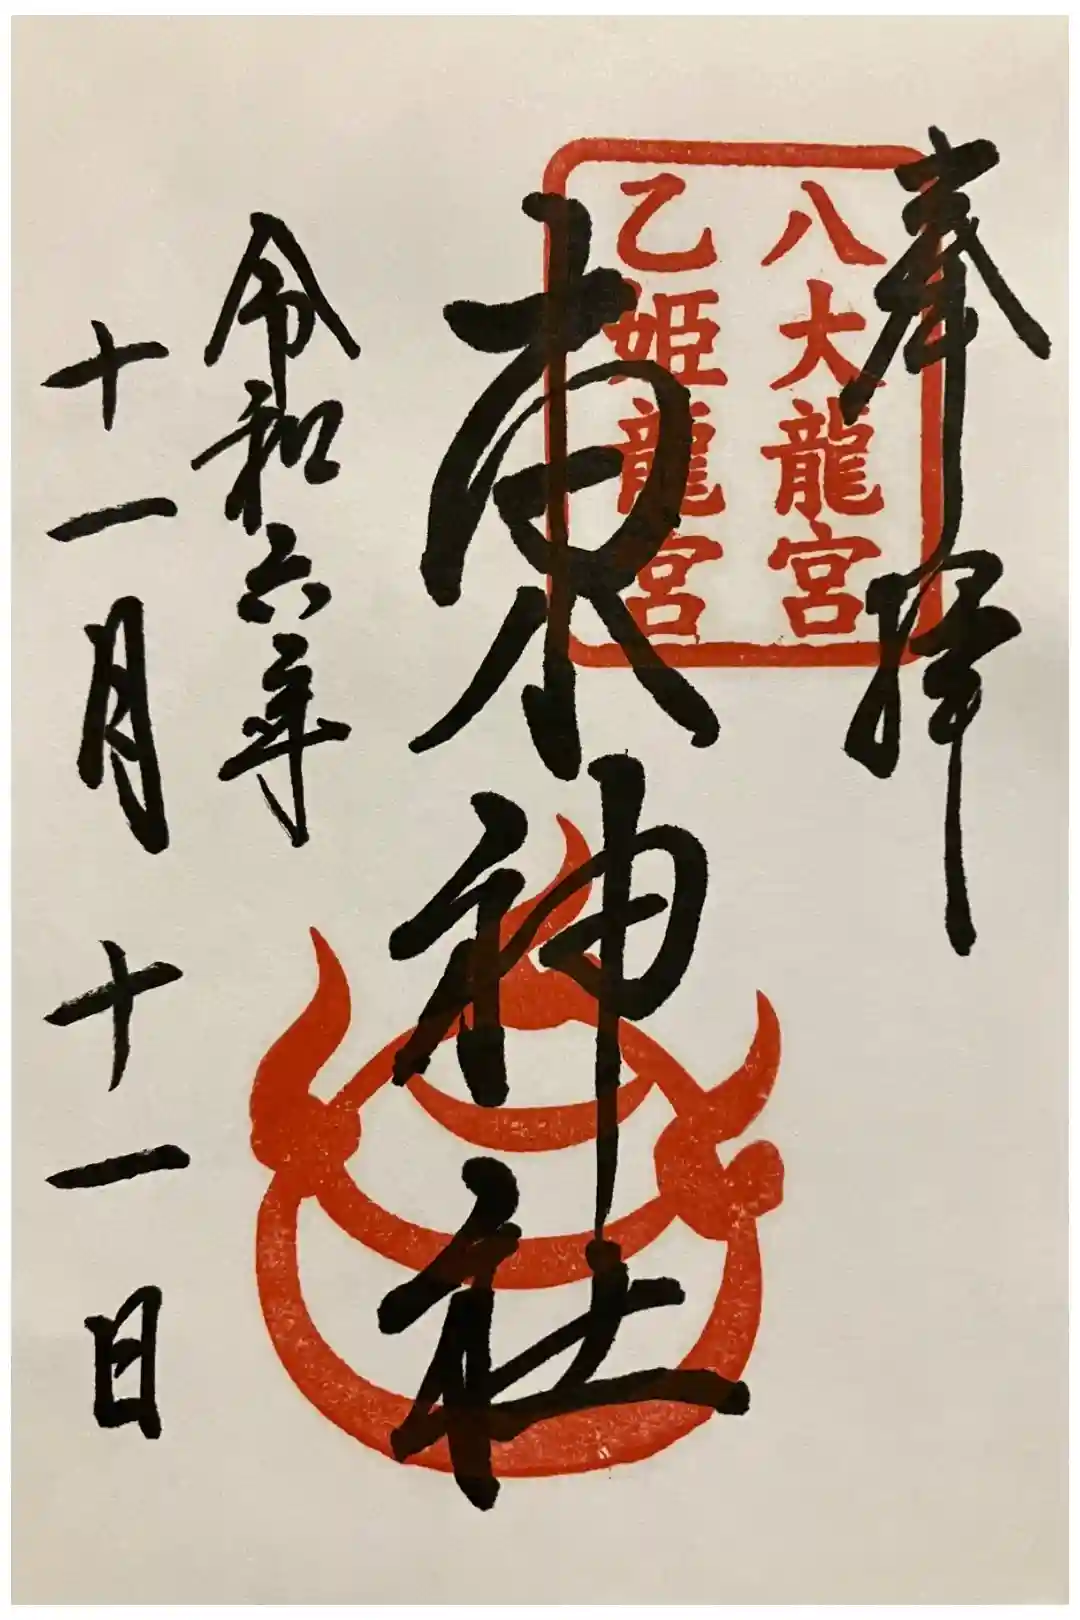 奉拝
八大龍宮
乙姫龍宮
東神社
令和六年
十一月十一日